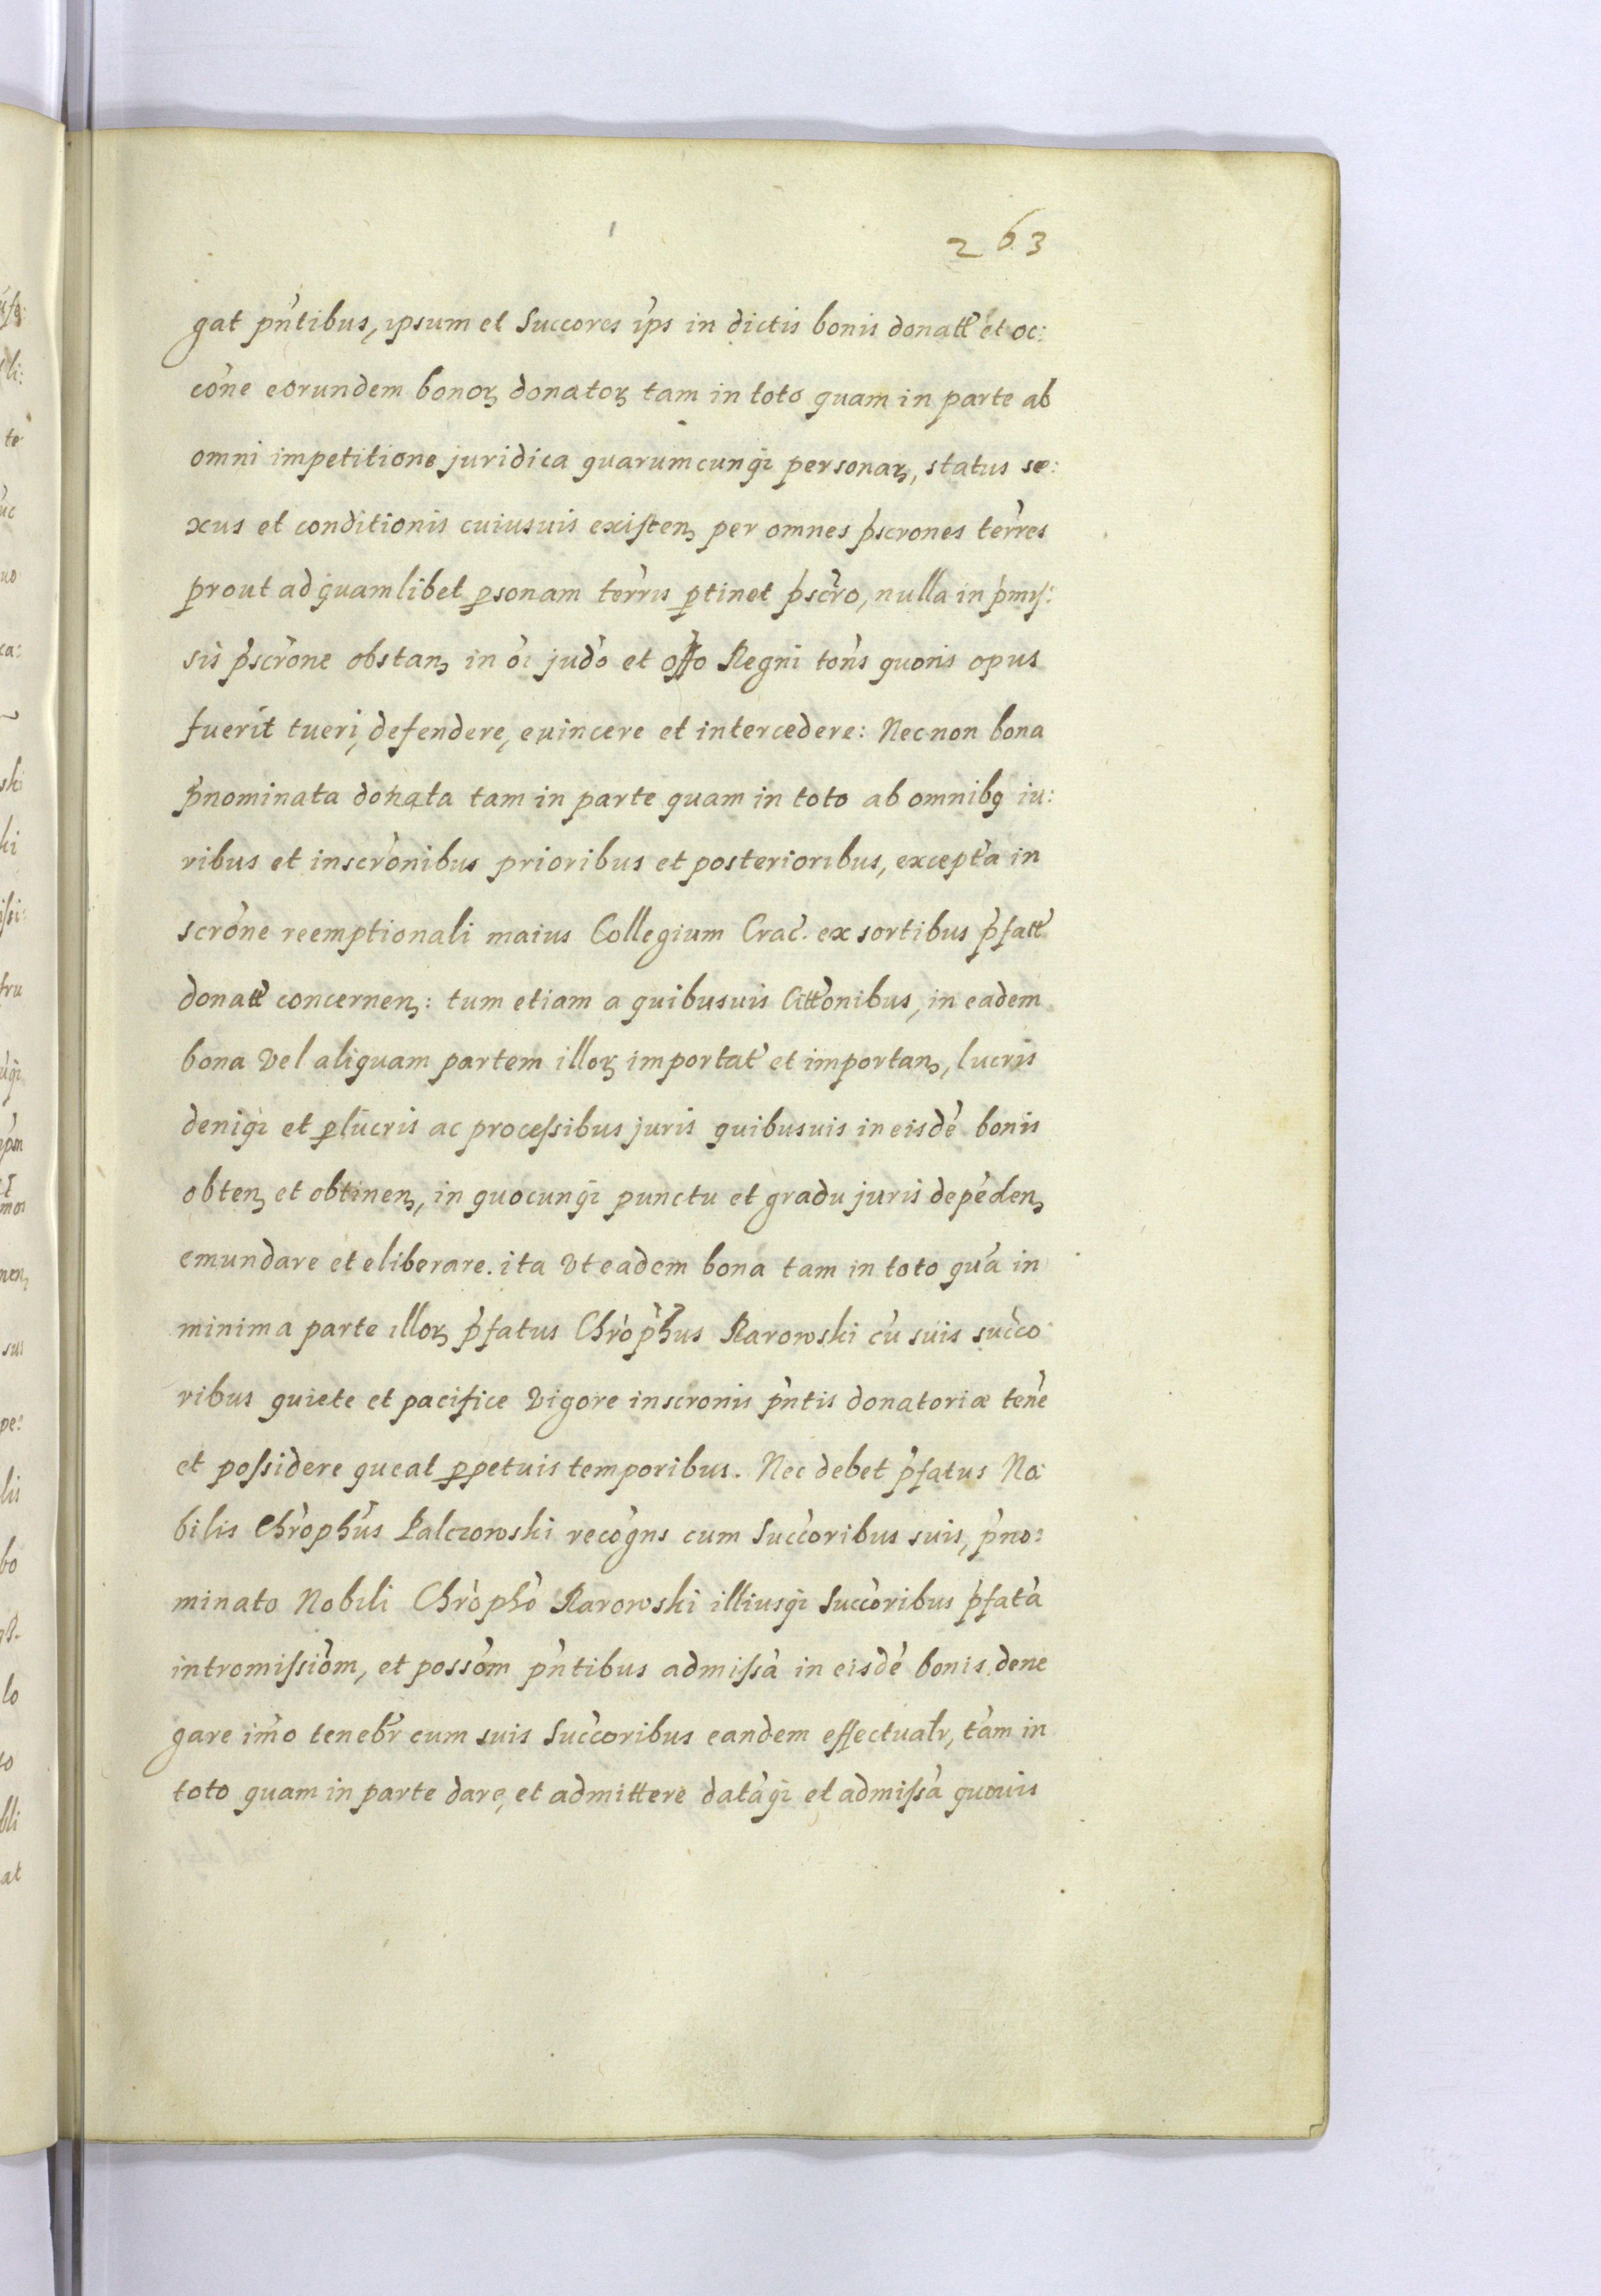 263
gat pn̄tibus, ipsum et Succores ip̄s in dictis bonis donatt̄ et oc:
cōne eorundem bonoꝝ donatoꝝ tam in toto quam in parte ab
omni impetitione juridica quarumcunqꝫ personaꝝ, status se:
xus et conditionis cuiusuis existenꝫ per omnes p̄scrones terr̄es
prout ad quamlibet ꝑsonam terr̄is ꝑtinet p̄scr̄o, nulla in p̄mis:
sis p̄scr̄one obstanꝫ in ōi jud̄o et off̄o Regni ton̄s quoris opus
fuerit tueri, defendere, euincere et intercedere: Nec non bona
p̄nominata donata tam in parte quam in toto ab omnibꝫ iu:
ribus et inscr̄onibus prioribus et posterioribus, except̄a in
scr̄one reemptionali maius Collegium Crac̄. ex sortibus p̄fatt̄
donatt̄ concernenꝫ: tum etiam a quibusuis Citt̄onibus, in eadem
bona vel aliquam partem illoꝝ importat̄ et importanꝫ, lucris
deniqꝫ et ꝑlucris ac processibus juris quibusuis in eisdē bonis
obtenꝫ et obtinenꝫ, in quocunqꝫ punctu et gradu juris depēdenꝫ
emundare et eliberare. ita vt eadem bona tam in toto quā in
minima parte illoꝝ p̄fatus Chrōp̄hus Rarowski cū suis succ̄o
ribus quiete et pacifice vigore inscronis pn̄tis donatoriæ ten̄e
et possidere queat ꝑpetuis temporibus. Nec debet p̄fatus No:
bilis Chrōph̄us Palczowski recoḡns cum Succ̄oribus suis, p̄no:
minato Nobili Chrōph̄o Rarowski illiusqꝫ Succ̄oribus p̄fatā
intromissiōm, et possōm pn̄tibus admissā in eisdē bonis dene
gare im̄o teneb̄r cum suis Succ̄oribus eandem effectualr̄, tam in
toto quam in parte dare, et admittere datāqꝫ et admissā quouis